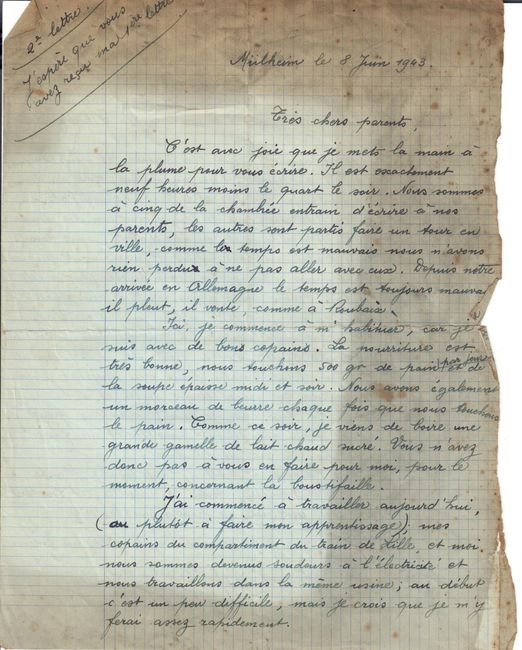 2e lettre.
J'espère que vous
avez reçu ma 1ère lettre
Mülheim le 8 Juin 1943.
Très chers parents,
C'est avec joie que je mets la main à
la plume pour vous écrire. Il est exactement
neuf heures moins le quart le soir. Nous sommes
à cinq de la chambrée entrain d'écrire à nos
parents, les autres sont partis faire un tour en
ville, comme le temps est mauvais nous n'avons
rien perdu à ne pas aller avec eux. Depuis notre
arrivée en Allemagne le temps est toujours mauvai
il pleut, il vente, comme à Roubaix.
Ici, je commence à m'habituer, car je
suis avec de bons copains. La nourriture est
très bonne, nous touchons 500 gr de pain par jour et de
la soupe épaisse midi et soir. Nous avons également
un morceau de beurre chaque fois que nous touchons
le pain. Comme ce soir, je viens de boire une
grande gamelle de lait chaud sucré. Vous n'avez
donc pas à vous en faire pour moi, pour le
moment, concernant la boustifaille.
J'ai commencé à travailler aujourd'hui,
(ou plutôt à faire mon apprentissage), mes
copains du compartiment du train de Lille et moi
nous sommes devenus soudeurs à l'électricité et
nous travaillons dans la même usine ; au début
c'est un peu difficile, mais je crois que je m'y
ferai assez rapidement.